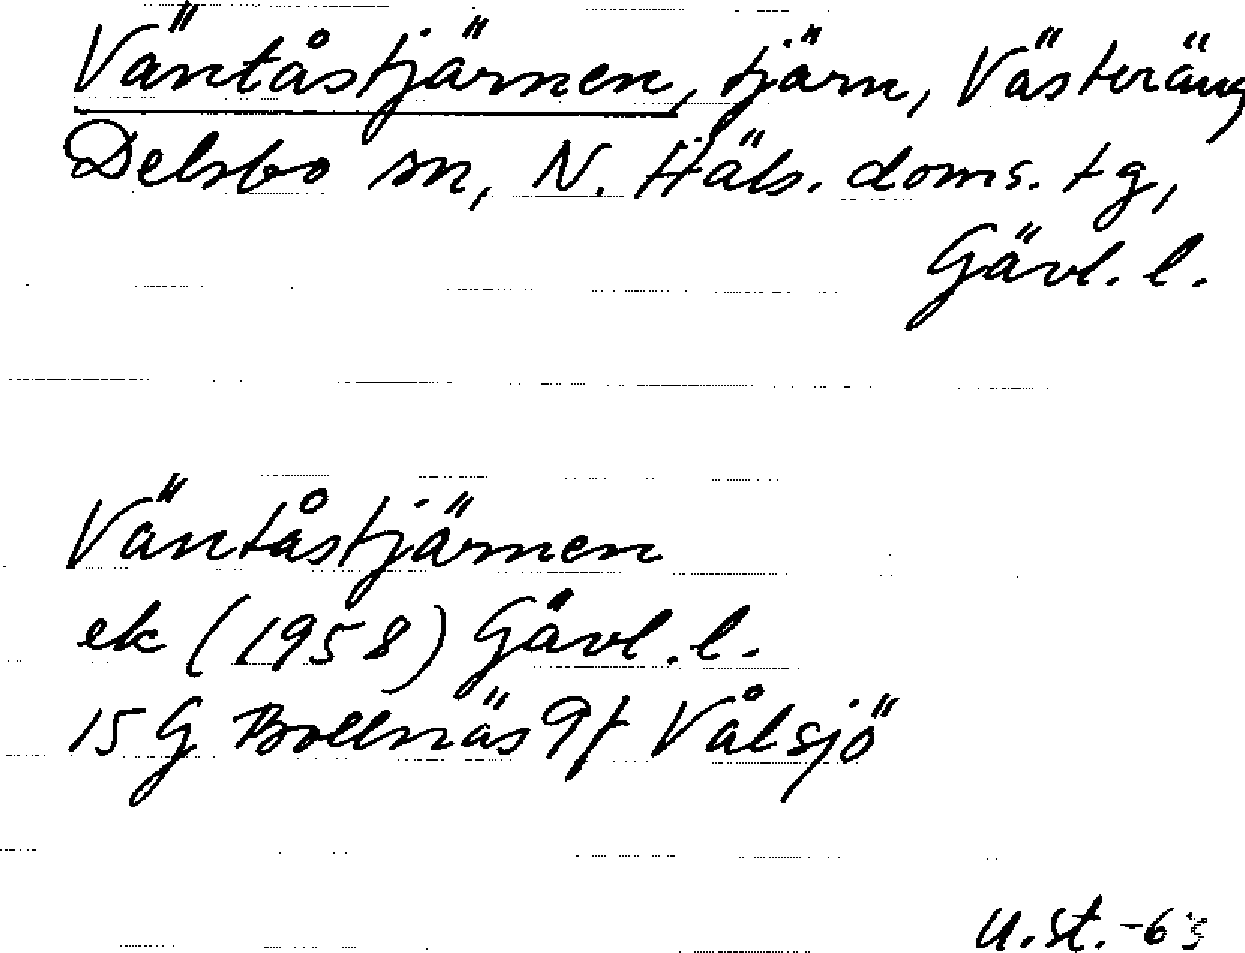 Väntåstjärnen, tjärn, Västeräng
Delsbo sn, N. Häls. doms. tg,
Gävl. l.
Väntåstjärnen
ek (1958) Gävl. l.
15 G Bollnäs 9f Vålsjö
U.st. -63